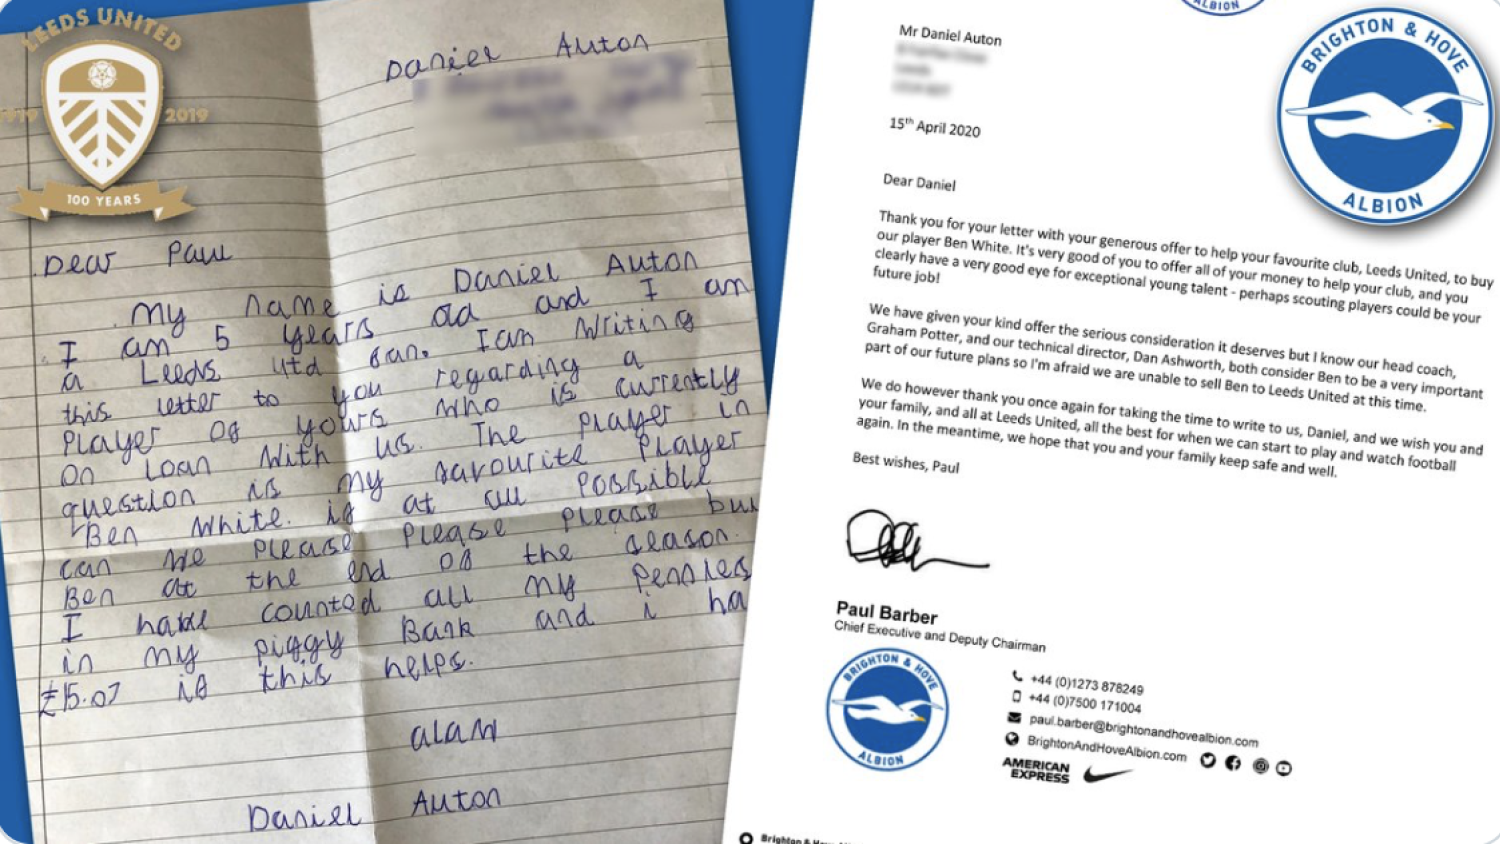 LEEDS UNITED
1919 2019
100 YEARS
Daniel Auton
Dear Paul
My name is Daniel Auton
I am 5 years old and I am
a Leeds utd fan. I am writing
this letter to you regarding a
player of yours who is currently
on loan with us. The player in
question is my favourite player
Ben White. if at all possible
can we please please please buy
Ben at the end of the season.
I have counted all my pennies
in my piggy Bank and i ha
£15.07 if this helps.
alaw
Daniel Auton
ALBION
BRIGHTON & HOVE
ALBION
Mr Daniel Auton
15th April 2020
Dear Daniel
Thank you for your letter with your generous offer to help your favourite club, Leeds United, to buy
our player Ben White. It's very good of you to offer all of your money to help your club, and you
clearly have a very good eye for exceptional young talent - perhaps scouting players could be your
future job!
We have given your kind offer the serious consideration it deserves but I know our head coach,
Graham Potter, and our technical director, Dan Ashworth, both consider Ben to be a very important
part of our future plans so I'm afraid we are unable to sell Ben to Leeds United at this time.
We do however thank you once again for taking the time to write to us, Daniel, and we wish you and
your family, and all at Leeds United, all the best for when we can start to play and watch football
again. In the meantime, we hope that you and your family keep safe and well.
Best wishes, Paul
Paul Barber
Chief Executive and Deputy Chairman
BRIGHTON & HOVE
ALBION
+44 (0)1273 878249
+44 (0)7500 171004
paul.barber@brightonandhovealbion.com
BrightonAndHoveAlbion.com
AMERICAN
EXPRESS
Brighton & Hove